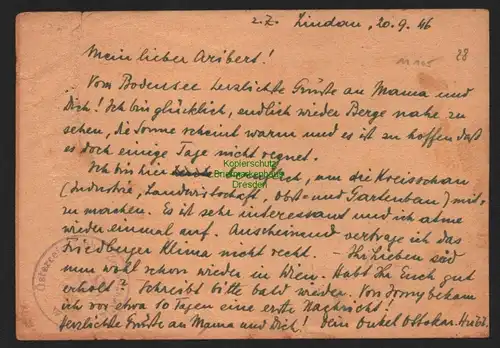 z.Z. Lindau, 20.9.46
Mein lieber Aribert!
28
Vom Bodensee herzlichste Grüße an Mama und
Dich! Ich bin glücklich, endlich wieder Berge nahe zu
sehen, die Sonne scheint warm und es ist zu hoffen daß
es doch einige Tage nicht regnet.
Ich bin hier um die Kreisschau
(Industrie, Landwirtschaft, Obst- und Gartenbau) mit-
zumachen. Es ist sehr interessant und ich atme
wieder einmal auf. Anscheinend vertrage ich das
Friedberger Klima nicht recht. – Ihr Lieben seid
nun wohl schon wieder in Wien. Habt Ihr Euch gut
erholt? Schreibt bitte bald wieder. Von bekam
ich vor etwa 10 Tagen eine erste Nachricht!
Herzlichste Grüße an Mama und Dich! Dein Onkel Ottokar
Kopierschutz
Briefmarkenhaus
Dresden